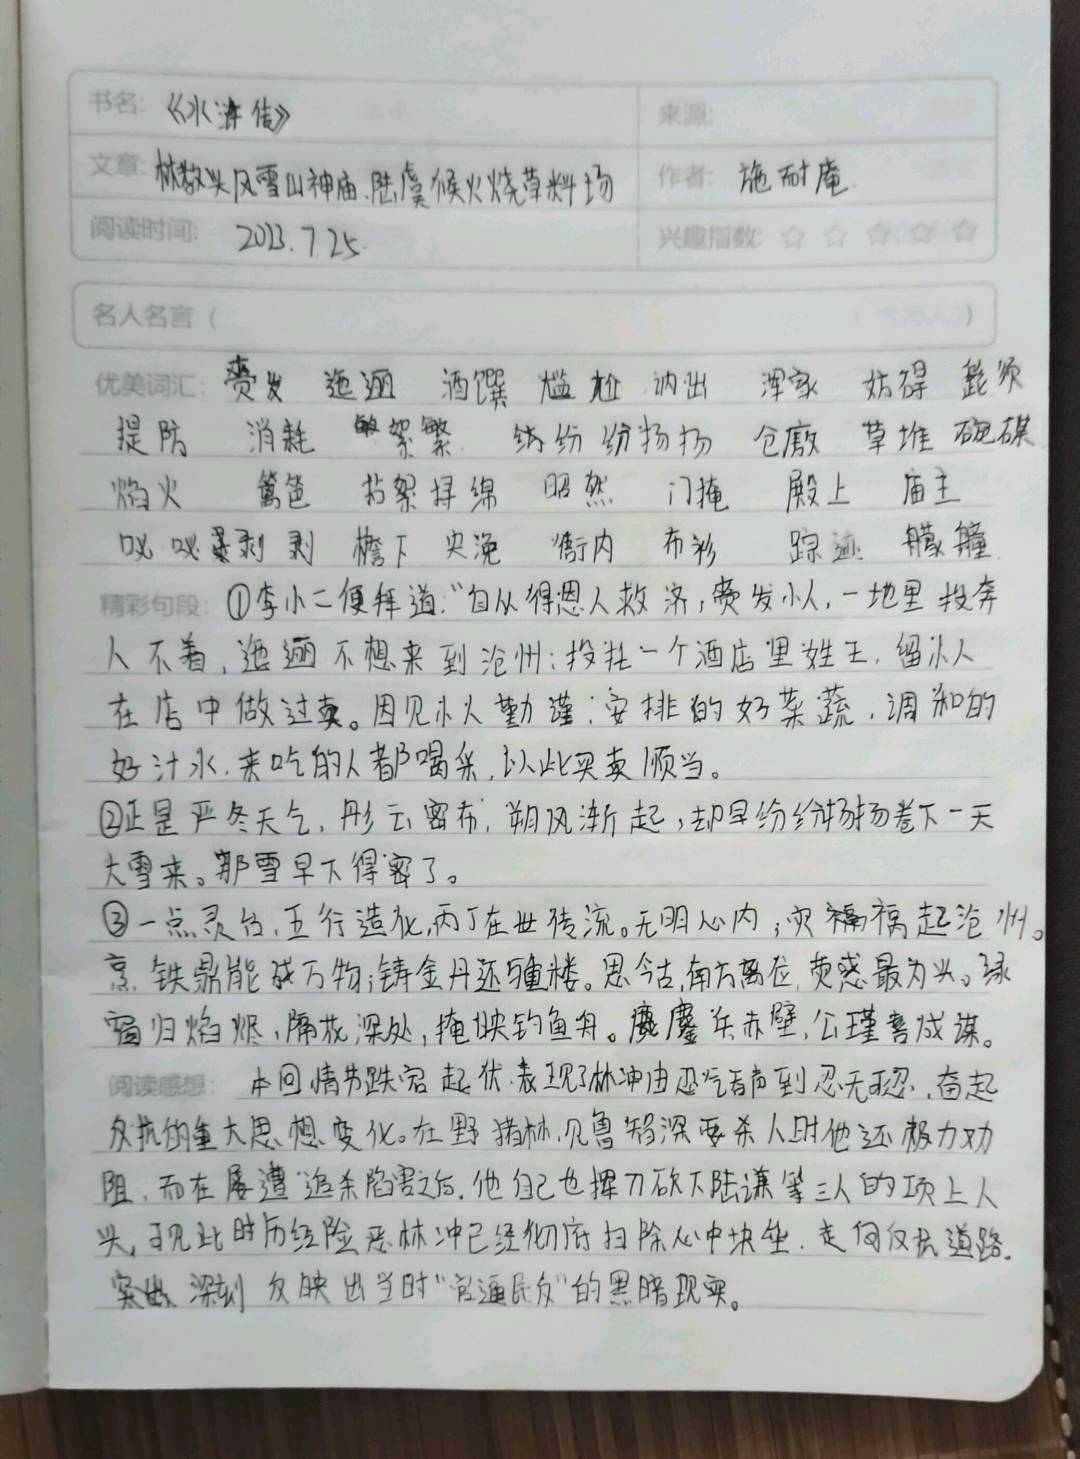 书名: 《水浒传》
来源:
文章: 林教头风雪山神庙、陆虞候火烧草料场
作者: 施耐庵
阅读时间: 2023.7.25.
兴趣指数: ☆ ☆ ☆ ☆ ☆
名人名言 (
)
优美词汇: 赍发 迤逦 酒馔 尴尬 讷出 浑家 妨碍 髭须
提防 消耗 絮繁 缤纷 纷扬扬 仓廒 草堆 碗碟
焰火 篱笆 扯絮挦绵 昭然 门掩 殿上 庙主
必必剥剥 檐下 灾浼 衙内 布衫 踪迹 朦胧
精彩句段: ①李小二便拜道:"自从得恩人救济,赍发小人,一地里投奔
人不着,迤逦不想来到沧州;投托一个酒店里姓王,留小人
在店中做过卖。因见小人勤谨;安排的好菜蔬,调和的
好汁水,来吃的人都喝采,以此买卖顺当。
②正是严冬天气,彤云密布,朔风渐起,却早纷纷扬扬卷下一天
大雪来。那雪早下得密了。
③一点灵台,五行造化,丙丁在世传流。无明心内,灾祸起沧州。
烹铁鼎能成万物;铸金丹还重楼。思今古,南方离位,荧惑最为头。绿
窗归焰烬,隔花深处,掩映钓鱼舟。鏖鏖兵赤壁,公瑾喜成谋。
阅读感想: 本回情节跌宕起伏,表现了林冲由忍气吞声到忍无可忍,奋起
反抗的重大思想变化。在野猪林,见鲁智深要杀人时他还极力劝
阻,而在屡遭追杀陷害之后,他自己也挥刀砍下陆谦等三人的项上人
头,可见此时历经险恶林冲已经彻底扫除心中块垒,走向反抗道路。
突出、深刻反映出当时"官逼民反"的黑暗现实。